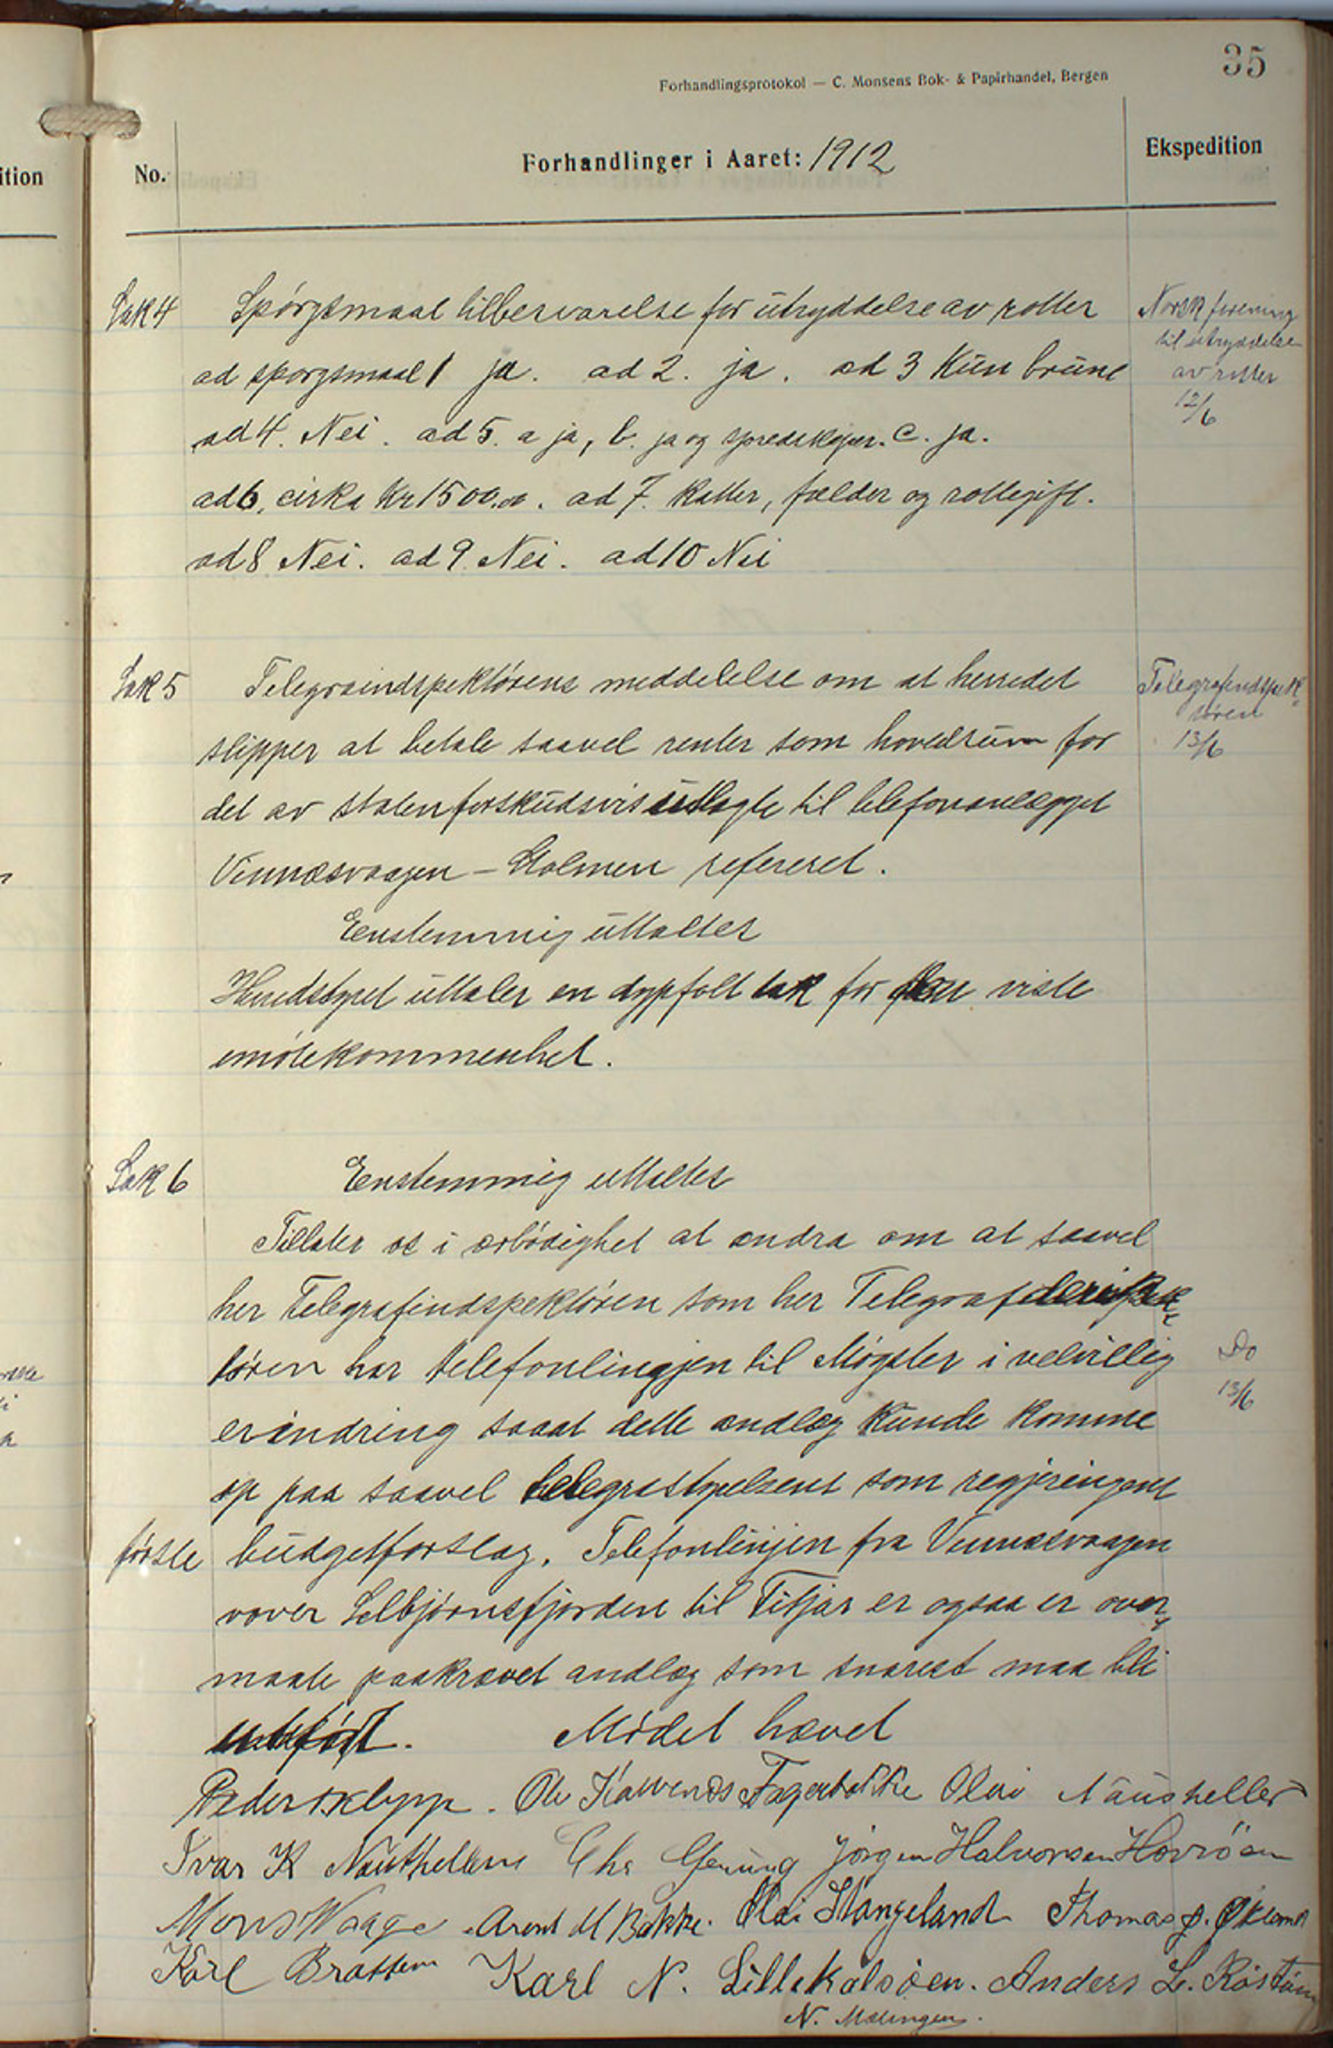 35
Forhandlingsprotokol — C. Monsens Bok- & Papirhandel, Bergen
ition
No.
Forhandlinger i Aaret: 1912
Ekspedition
Sak 4
Spórgsmaal tilbesvarelse for utryddelse av rotter
ad sporgsmaal 1 ja. ad 2. ja. ad 3 Kun brune
ad 4. Nei. ad 5. a ja, b. ja og spredskyer. c. ja.
ad 6. cirka Kr 1500.00. ad 7. Katter, fælder og rottegift.
ad 8 Nei. ad 9. Nei. ad 10 Nei
Norsk forening
til utryddelse
av rotter
12/6
Sak 5
Telegraindspektórens meddelelse om at herredet
slipper at betale saavel renter som hovedsum for
det av staten forskudsvis utlagte til telefonanlægget
Vinnæsvaagen – Stolmen refereret.
Eenstemmig uttaltes
Herredstyret uttaler en dypfolt tak for den viste
imótekommenhet.
Telegrafindspek-
tóren
13/6
Sak 6
Enstemmig uttaltes
Tillater os i ærbódighet at andra om at saavel
her Telegrafindspektóren som her Telegrafdirek-
tóren har telefonlingjen til Mógster i velvillig
erindring saaat dette andlæg Kunde komme
op paa saavel telegrastyrelsens som regjeringens
fórste budgetforslag. Telefonlinjen fra Vinnæsvaagen
over Selbjórnsfjorden til Fitjar er ogsaa er over-
maate paakrævet andlæg som snarest maa bli
utfórt. Módet hævet
Do
13/6
Peder Sklypp. Ole Fagerbakke Olai Nausheller
Ivar K Nautheller Chr Gjerung Jórgen Halvorsen Hovróen
Mons Waage. Arent M Bakke. Olai Stangeland Thomas J. Økland
Karl Brattem Karl N. Lillekalsóen. Anders L. Róstun
N. Mælingen.